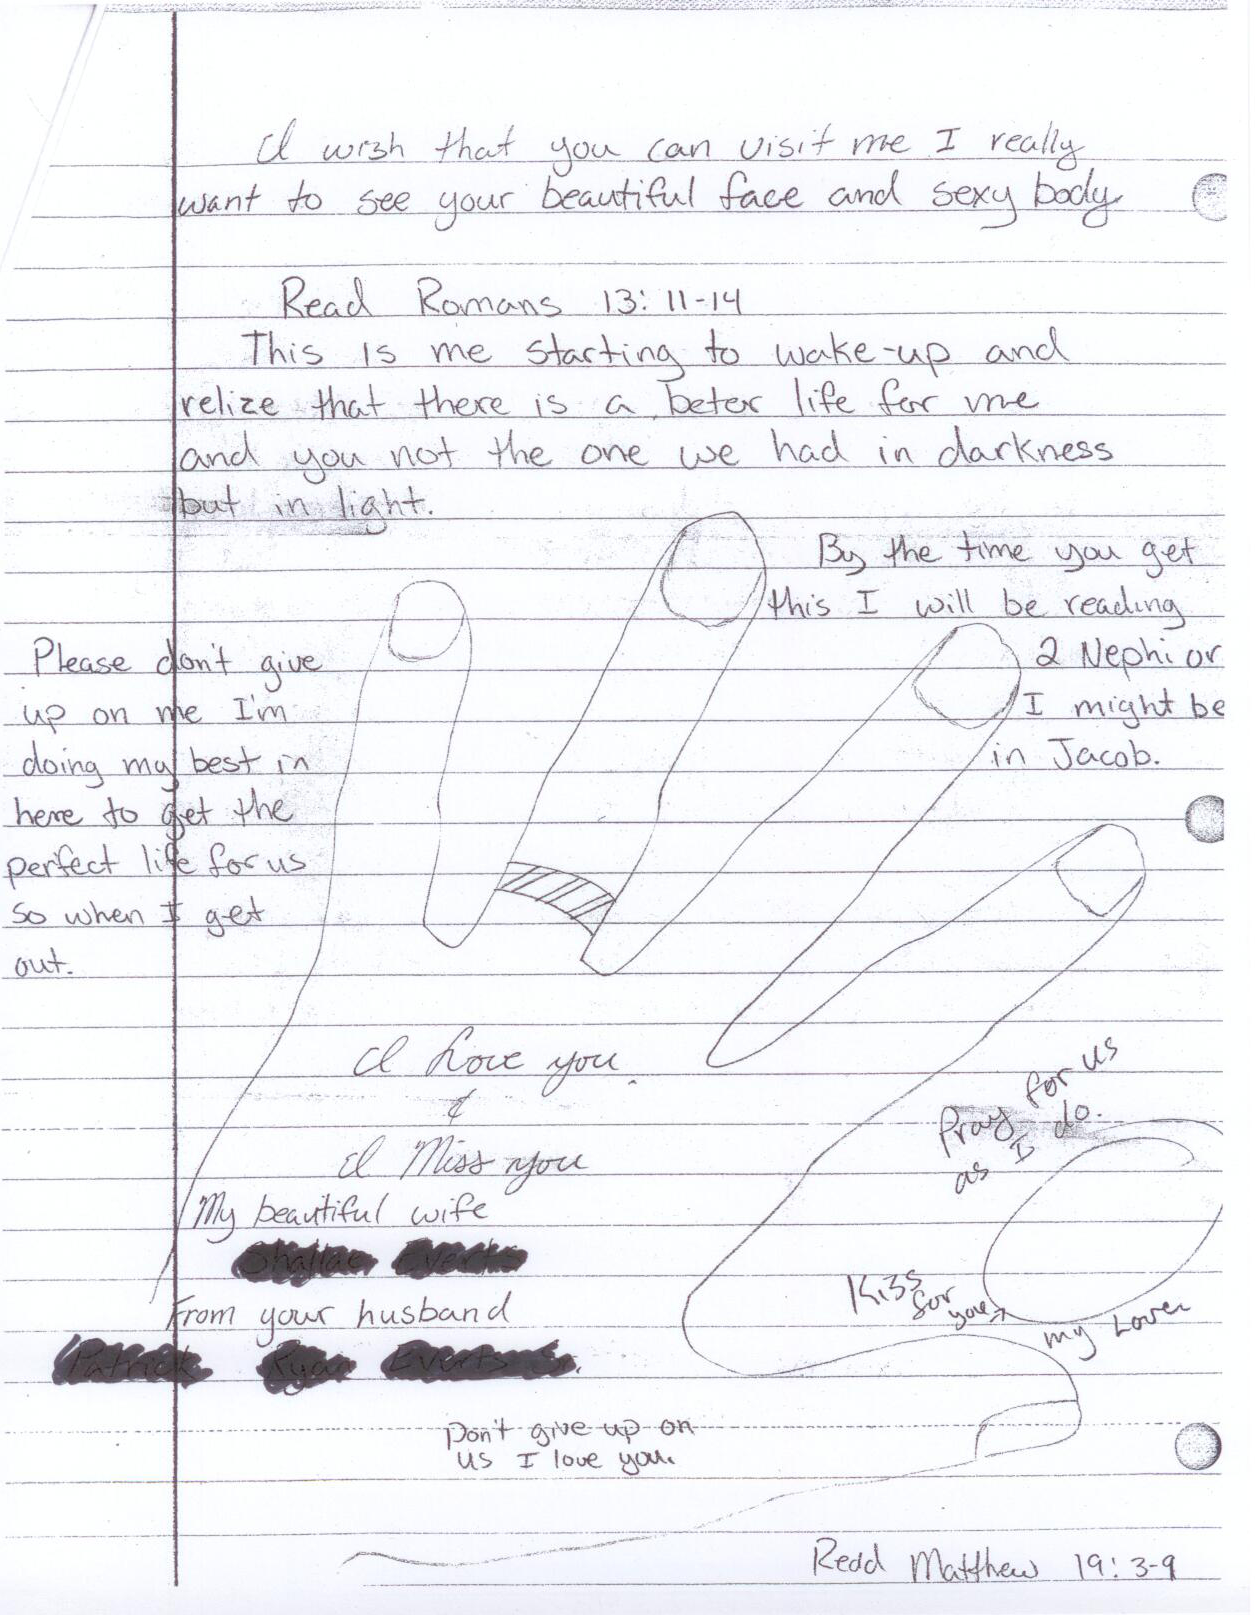 I wish that you can visit me I really
want to see your beautiful face and sexy body
Read Romans 13:11-14
This is me starting to wake-up and
relize that there is a beter life for me
and you not the one we had in darkness
but in light.
By the time you get
this I will be reading
2 Nephi or
I might be
in Jacob.
Please don't give
up on me I'm
doing my best in
here to get the
perfect life for us
so when I get
out.
I Love you
&
I Miss you
Pray for us
as I do.
My beautiful wife
From your husband
Kiss
for
you
my Lover
Don't give up on
us I love you.
Read Matthew 19:3-9